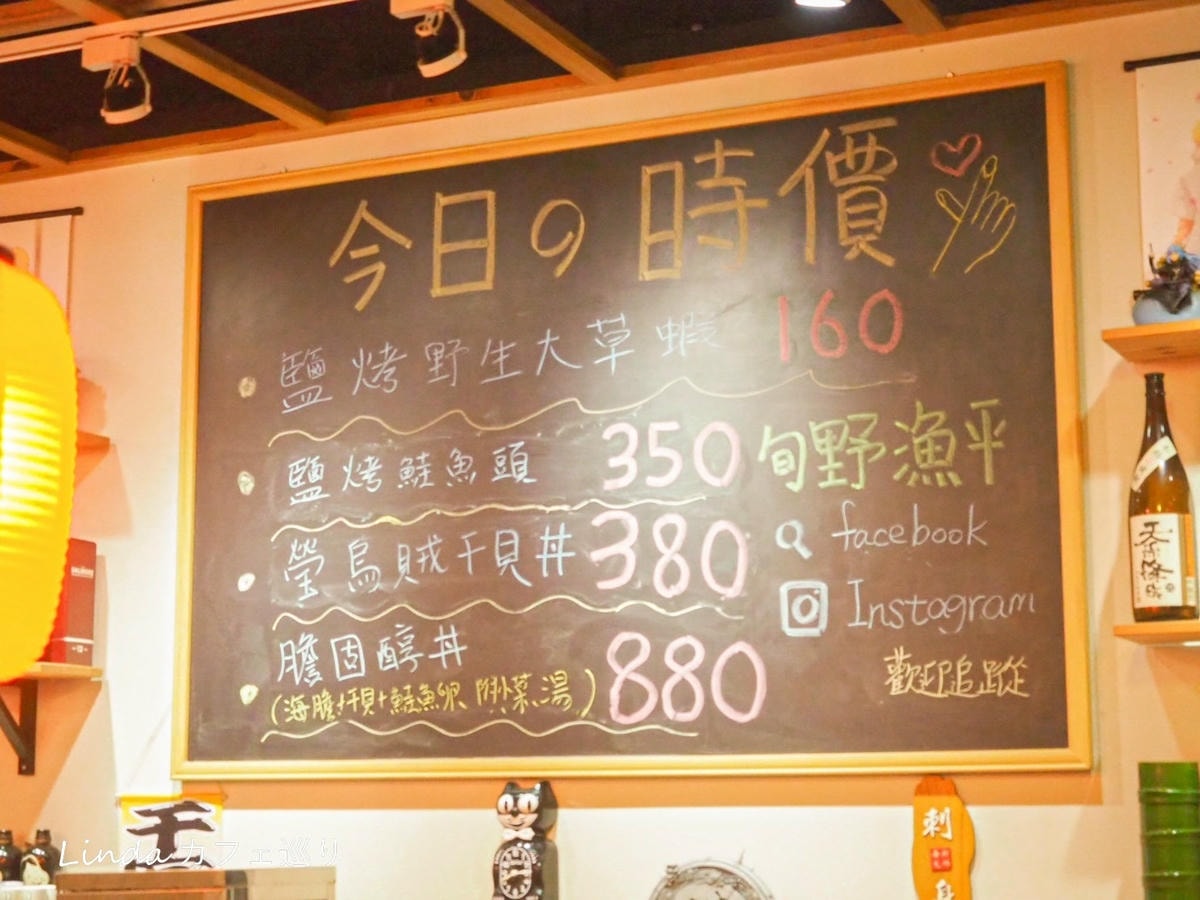 今日の時價
鹽烤野生大草蝦 160
鹽烤鮭魚頭 350
螢烏賊干貝丼 380
膽固醇丼 880
(海膽+干貝+鮭魚卵 附小菜、湯)
旬野漁平
facebook
Instagram
歡迎追蹤
刺
身
Linda カフェ巡り